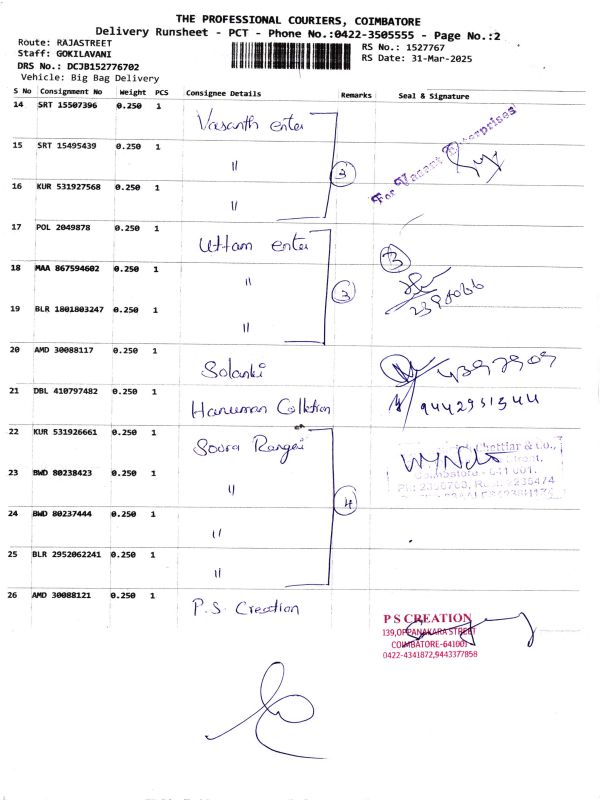 THE PROFESSIONAL COURIERS, COIMBATORE
Delivery Runsheet - PCT - Phone No.:0422-3505555 - Page No.:2
Route: RAJASTREET
Staff: GOKILAVANI
DRS No.: DCJB152776702
Vehicle: Big Bag Delivery
RS No.: 1527767
RS Date: 31-Mar-2025
S No Consignment No Weight PCS Consignee Details Remarks Seal & Signature
14 SRT 15507396 0.250 1 Vasanth enter
For Vasant Enterprises
15 SRT 15495439 0.250 1 "
3
16 KUR 531927568 0.250 1 "
17 POL 2049878 0.250 1 Uttam enter
3
18 MAA 867594602 0.250 1 "
3
2398066
19 BLR 1801803247 0.250 1 "
20 AMD 30088117 0.250 1 Solanki
21 DBL 410797482 0.250 1 Hanuman Colletion
22 KUR 531926661 0.250 1 Soora
Chettiar & Co.,
23 BWD 80238423 0.250 1 "
4
24 BWD 80237444 0.250 1 "
25 BLR 2952062241 0.250 1 "
26 AMD 30088121 0.250 1 P.S. Creation
P S CREATION
139,OPPANAKARA STREET
COIMBATORE-641001
0422-4341872,9443377858